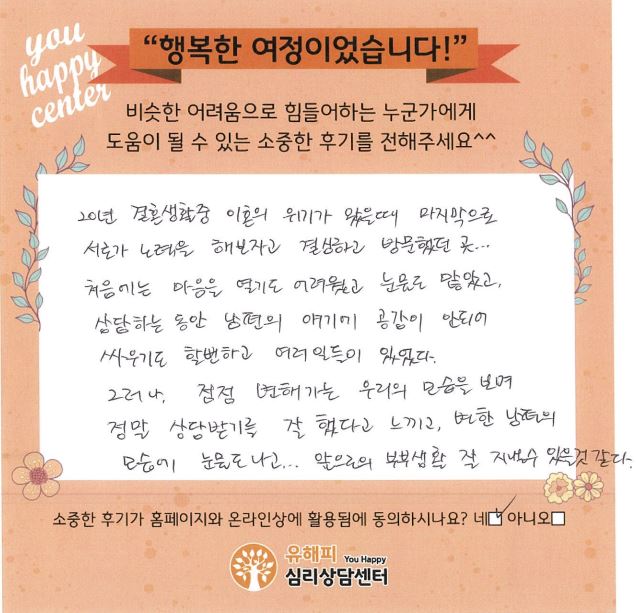 you
happy
center
“행복한 여정이었습니다!”
비슷한 어려움으로 힘들어하는 누군가에게
도움이 될 수 있는 소중한 후기를 전해주세요^^
20년 결혼생활중 이혼의 위기가 왔을때 마지막으로
서로가 노력을 해보자고 결심하고 방문했던 곳...
처음에는 마음을 열기도 어려웠고 눈물도 많았고,
상담하는 동안 남편의 얘기에 공감이 안되어
싸우기도 할번하고 여러일들이 있었다.
그러나, 점점 변해가는 우리의 모습을 보며
정말 상담받기를 잘 했다고 느끼고, 변한 남편의
모습에 눈물도 나고... 앞으로의 부부생활 잘 지낼수 있을것 같다.
소중한 후기가 홈페이지와 온라인상에 활용됨에 동의하시나요? 네 아니오
유해피 You Happy
심리상담센터